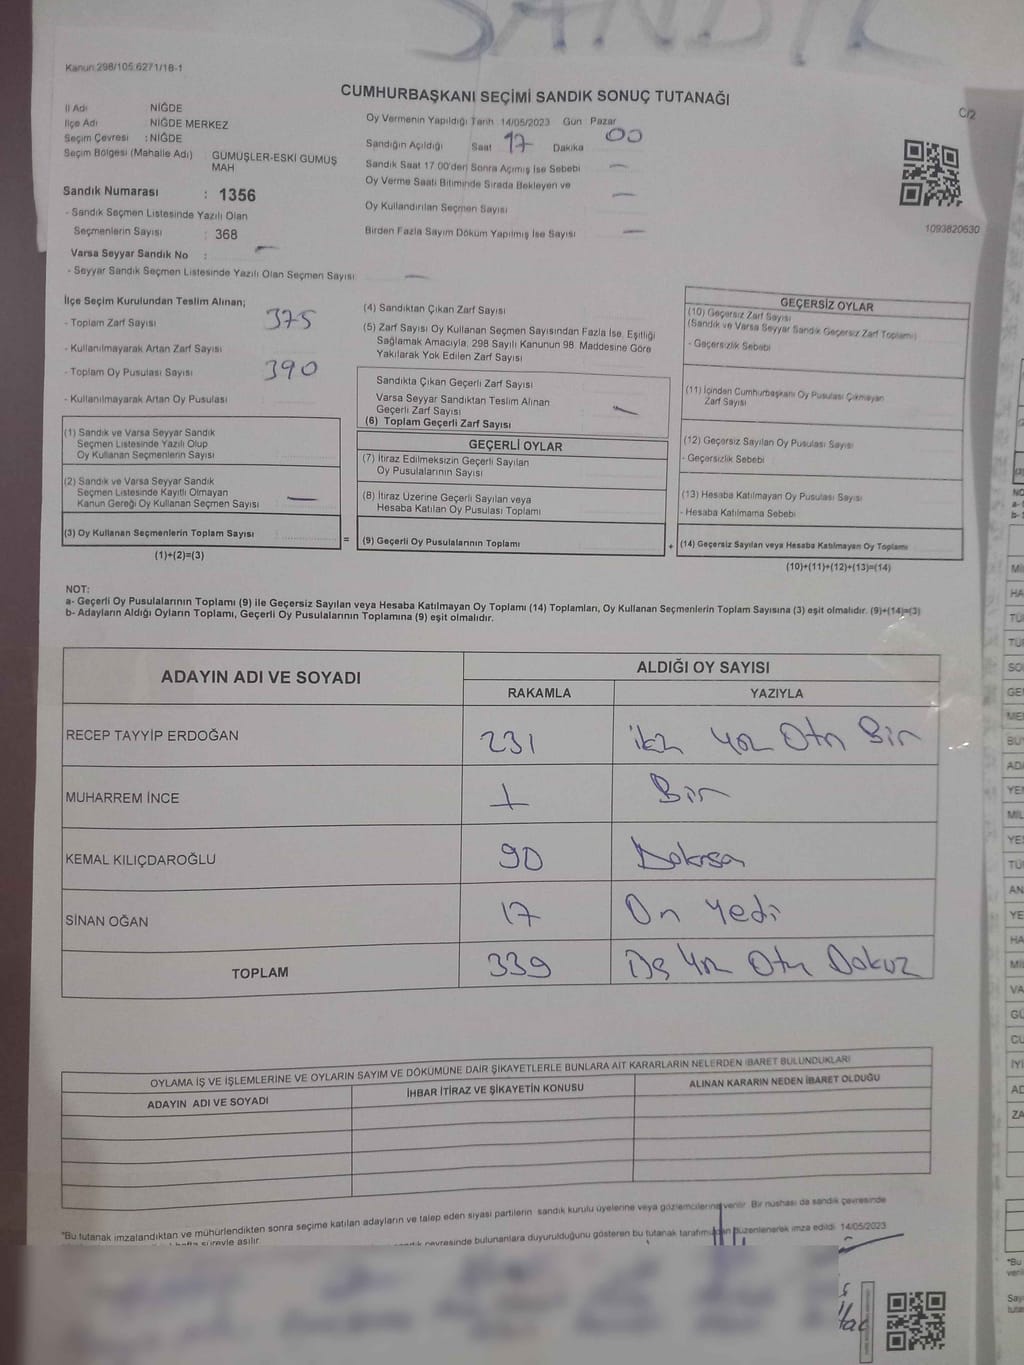 SANDIK
Kanun:298/105,6271/18-1
CUMHURBAŞKANI SEÇİMİ SANDIK SONUÇ TUTANAĞI
C/2
İl Adı NİĞDE
İlçe Adı NİĞDE MERKEZ
Seçim Çevresi : NİĞDE
Seçim Bölgesi (Mahalle Adı) : GÜMÜŞLER-ESKİ GÜMÜŞ
MAH
Sandık Numarası : 1356
- Sandık Seçmen Listesinde Yazılı Olan
Seçmenlerin Sayısı : 368
Varsa Seyyar Sandık No : —
- Seyyar Sandık Seçmen Listesinde Yazılı Olan Seçmen Sayısı —
Oy Vermenin Yapıldığı Tarih 14/05/2023 Gün Pazar
Sandığın Açıldığı Saat 17 Dakika 00
Sandık Saat 17.00'den Sonra Açmış İse Sebebi —
Oy Verme Saati Bitiminde Sırada Bekleyen ve
Oy Kullandırılan Seçmen Sayısı —
Birden Fazla Sayım Döküm Yapılmış İse Sayısı —
1093820630
İlçe Seçim Kurulundan Teslim Alınan;
- Toplam Zarf Sayısı 375
- Kullanılmayarak Artan Zarf Sayısı
- Toplam Oy Pusulası Sayısı 390
- Kullanılmayarak Artan Oy Pusulası
(1) Sandık ve Varsa Seyyar Sandık
Seçmen Listesinde Yazılı Olup
Oy Kullanan Seçmenlerin Sayısı
(2) Sandık ve Varsa Seyyar Sandık
Seçmen Listesinde Kayıtlı Olmayan
Kanun Gereği Oy Kullanan Seçmen Sayısı —
(3) Oy Kullanan Seçmenlerin Toplam Sayısı =
(1)+(2)=(3)
(4) Sandıktan Çıkan Zarf Sayısı
(5) Zarf Sayısı Oy Kullanan Seçmen Sayısından Fazla İse, Eşitliği
Sağlamak Amacıyla, 298 Sayılı Kanunun 98. Maddesine Göre
Yakılarak Yok Edilen Zarf Sayısı
Sandıkta Çıkan Geçerli Zarf Sayısı
Varsa Seyyar Sandıktan Teslim Alınan
Geçerli Zarf Sayısı —
(6) Toplam Geçerli Zarf Sayısı
GEÇERLİ OYLAR
(7) İtiraz Edilmeksizin Geçerli Sayılan
Oy Pusulalarının Sayısı
(8) İtiraz Üzerine Geçerli Sayılan veya
Hesaba Katılan Oy Pusulası Toplamı
(9) Geçerli Oy Pusulalarının Toplamı +
GEÇERSİZ OYLAR
(10) Geçersiz Zarf Sayısı
(Sandık ve Varsa Seyyar Sandık Geçersiz Zarf Toplamı)
- Geçersizlik Sebebi
(11) İçinden Cumhurbaşkanı Oy Pusulası Çıkmayan
Zarf Sayısı
(12) Geçersiz Sayılan Oy Pusulası Sayısı
- Geçersizlik Sebebi
(13) Hesaba Katılmayan Oy Pusulası Sayısı
- Hesaba Katılmama Sebebi
(14) Geçersiz Sayılan veya Hesaba Katılmayan Oy Toplamı
(10)+(11)+(12)+(13)=(14)
NOT:
a- Geçerli Oy Pusulalarının Toplamı (9) ile Geçersiz Sayılan veya Hesaba Katılmayan Oy Toplamı (14) Toplamları, Oy Kullanan Seçmenlerin Toplam Sayısına (3) eşit olmalıdır. (9)+(14)=(3)
b- Adayların Aldığı Oyların Toplamı, Geçerli Oy Pusulalarının Toplamına (9) eşit olmalıdır.
ADAYIN ADI VE SOYADI
ALDIĞI OY SAYISI
RAKAMLA YAZIYLA
RECEP TAYYİP ERDOĞAN 231 iki yüz Otuz Bir
MUHARREM İNCE 1 Bir
KEMAL KILIÇDAROĞLU 90 Doksan
SİNAN OĞAN 17 On Yedi
TOPLAM 339 Üç Yüz Otuz Dokuz
OYLAMA İŞ VE İŞLEMLERİNE VE OYLARIN SAYIM VE DÖKÜMÜNE DAİR ŞİKAYETLERLE BUNLARA AİT KARARLARIN NELERDEN İBARET BULUNDUKLARI
ADAYIN ADI VE SOYADI İHBAR İTİRAZ VE ŞİKAYETİN KONUSU ALINAN KARARIN NEDEN İBARET OLDUĞU
*Bu tutanak imzalandıktan ve mühürlendikten sonra seçime katılan adayların ve talep eden siyasi partilerin sandık kurulu üyelerine veya gözlemcilerine verilir. Bir nüshası da sandık çevresinde
süreyle asılır.
çevresinde bulunanlara duyurulduğunu gösteren bu tutanak tarafımızdan düzenlenerek imza edildi. 14/05/2023